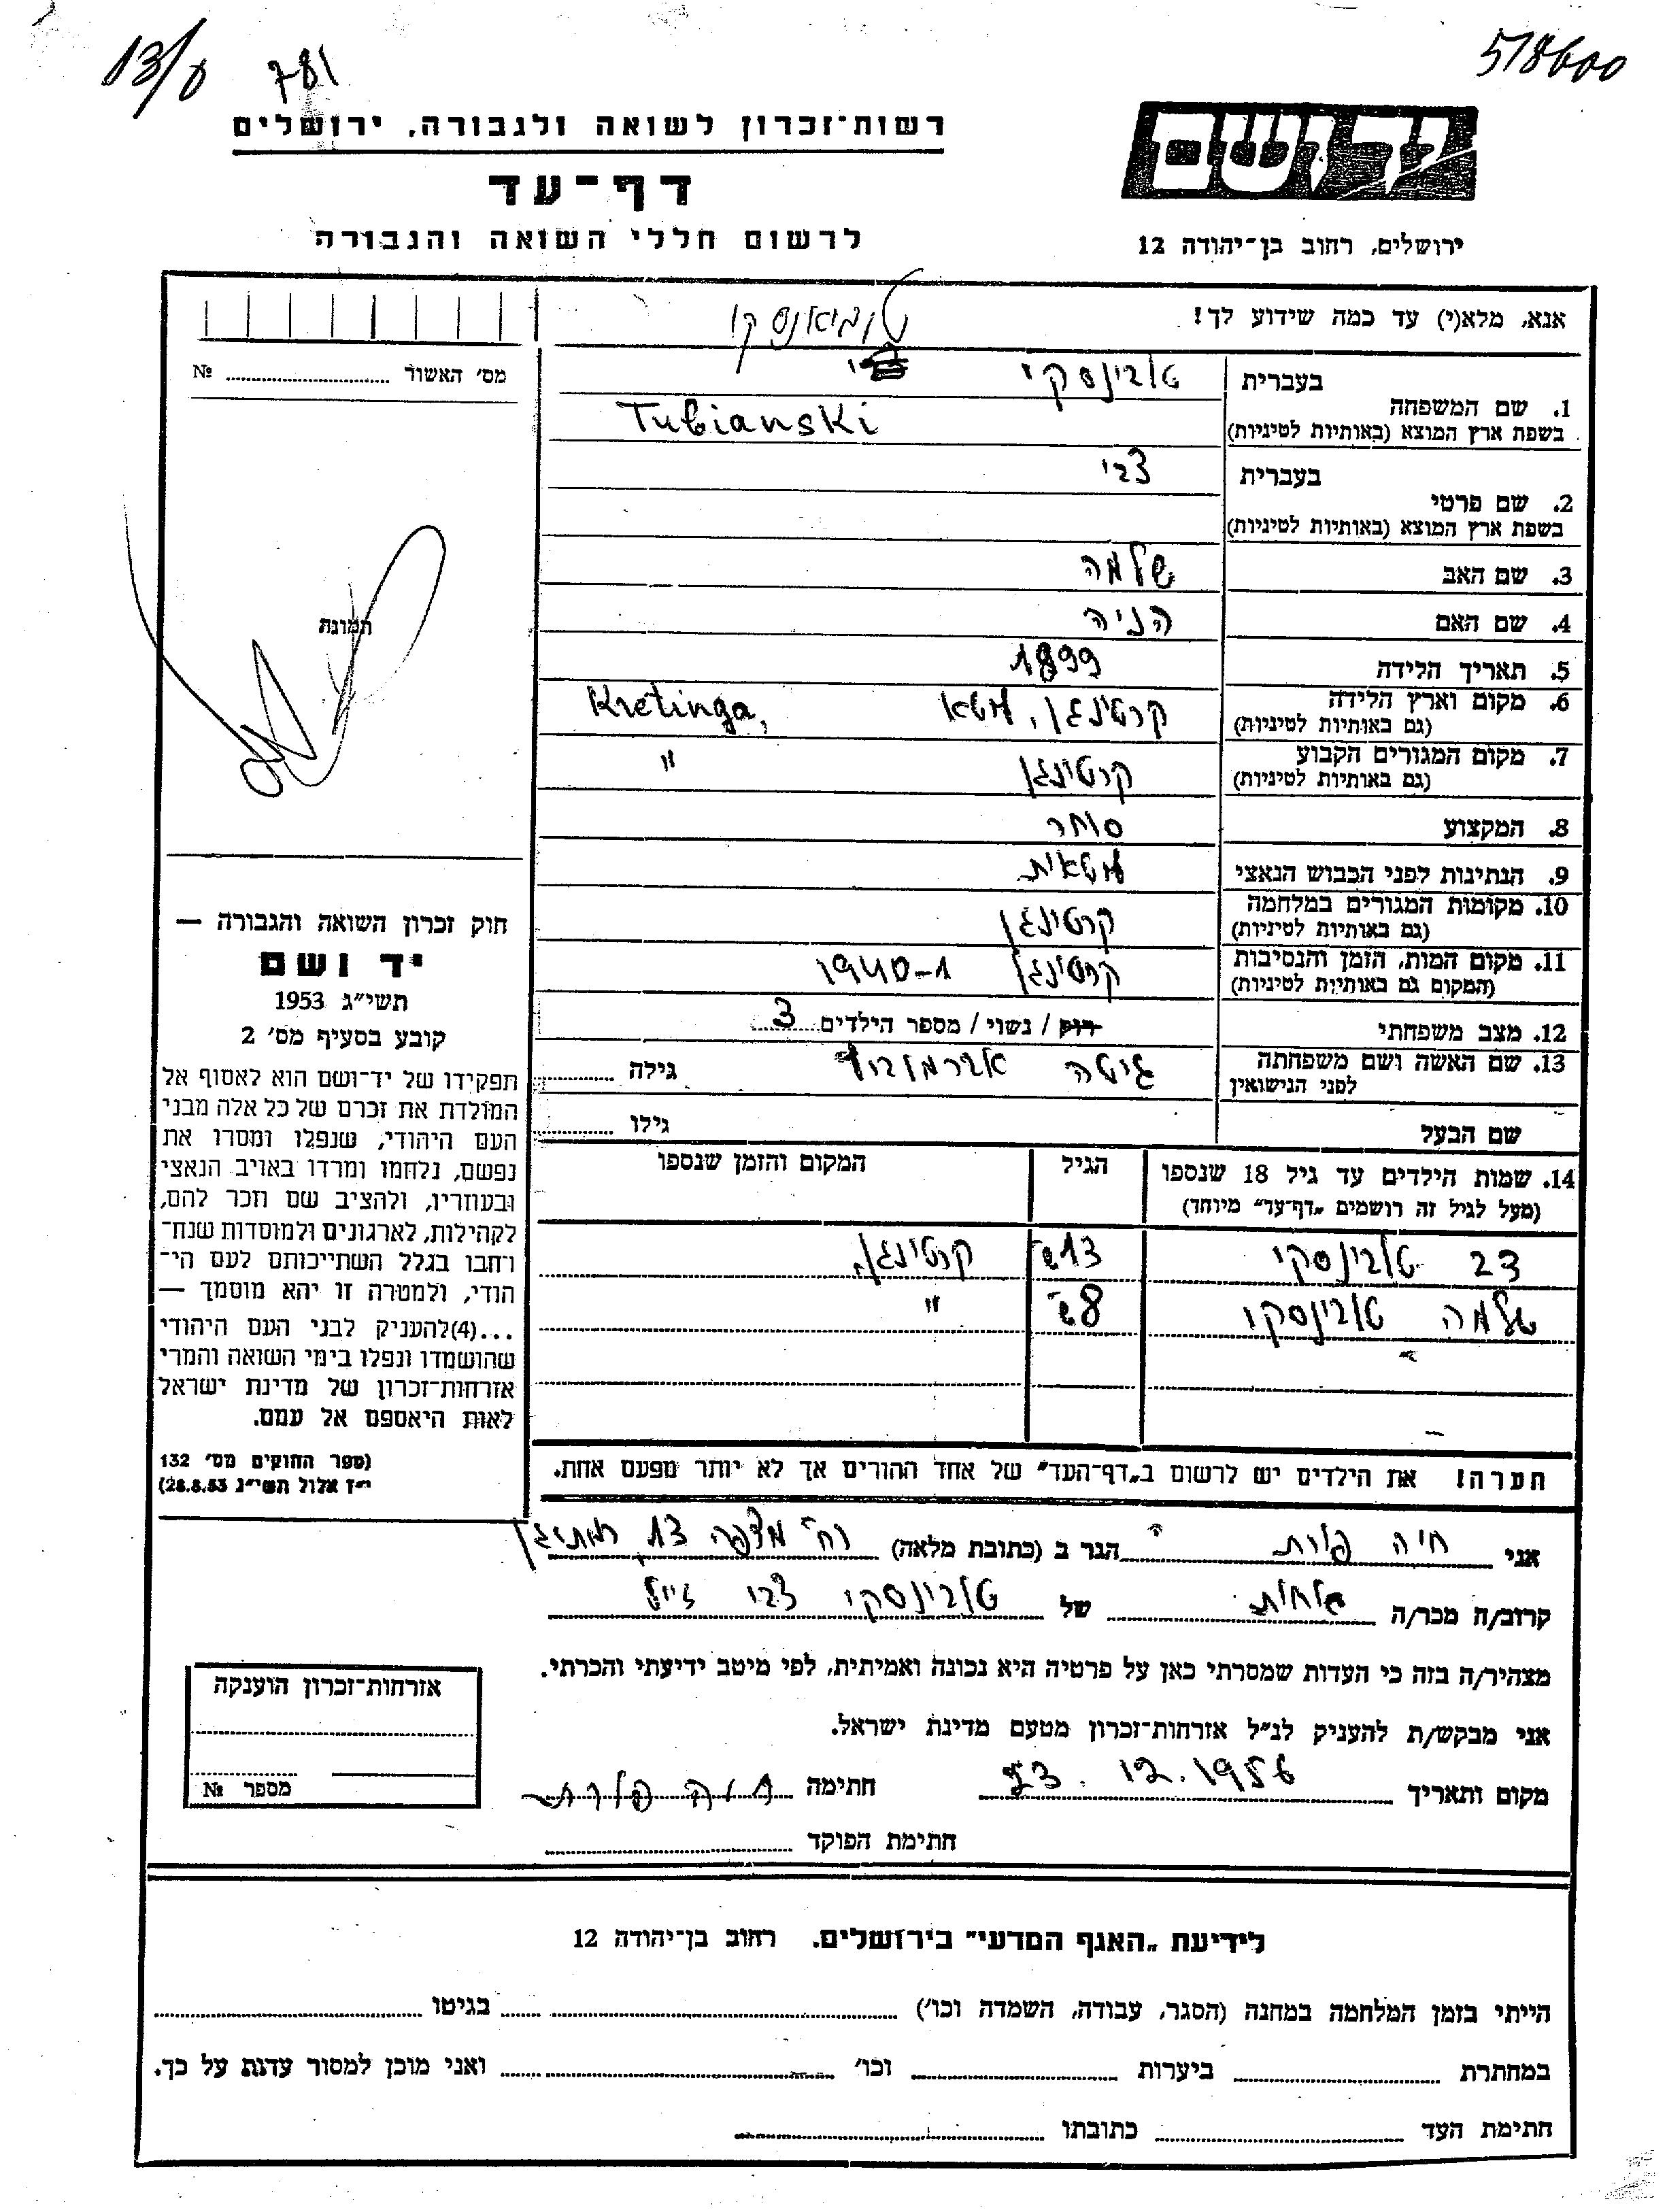 13/8 781 518600
רשות־זכרון לשואה ולגבורה, ירושלים
יד ושם
דף־עד
לרשום חללי השואה והגבורה
ירושלים, רחוב בן־יהודה 12
אנא, מלא(י) עד כמה שידוע לך!
טוביאנסקי
מס׳ האשור № ..........
1. שם המשפחה בעברית טובינסקי
בשפת ארץ המוצא (באותיות לטיניות) Tubianski
2. שם פרטי בעברית צבי
בשפת ארץ המוצא (באותיות לטיניות)
3. שם האב שלמה
4. שם האם הניה
5. תאריך הלידה 1899
6. מקום וארץ הלידה (גם באותיות לטיניות) קרטינגן, ליטא Kretinga,
7. מקום המגורים הקבוע (גם באותיות לטיניות) קרטינגן "
8. המקצוע סוחר
9. הנתינות לפני הכבוש הנאצי ליטאית
10. מקומות המגורים במלחמה (גם באותיות לטיניות) קרטינגן
11. מקום המות, הזמן והנסיבות (המקום גם באותיות לטיניות) קרטינגן 1940-1
12. מצב משפחתי רווק / נשוי / מספר הילדים 3
13. שם האשה ושם משפחתה לפני הנישואין גיטה אברמוביץ גילה ..........
שם הבעל גילו ..........
14. שמות הילדים עד גיל 18 שנספו הגיל המקום והזמן שנספו
(מעל לגיל זה רושמים „דף־עד" מיוחד)
טובינסקי 13 ש' קרטינגן
שלמה טובינסקי 8 ש' "
הערה! את הילדים יש לרשום ב„דף־העד" של אחד ההורים אך לא יותר מפעם אחת.
תמונה
חוק זכרון השואה והגבורה —
יד ושם
תשי״ג 1953
קובע בסעיף מס׳ 2
תפקידו של יד־ושם הוא לאסוף אל
המולדת את זכרם של כל אלה מבני
העם היהודי, שנפלו ומסרו את
נפשם, נלחמו ומרדו באויב הנאצי
ובעוזריו, ולהציב שם וזכר להם,
לקהילות, לארגונים ולמוסדות שנח־
רחבו בגלל השתייכותם לעם הי־
הודי, ולמטרה זו יהא מוסמך —
...(4) להעניק לבני העם היהודי
שהושמדו ונפלו בימי השואה והמרי
אזרחות־זכרון של מדינת ישראל
לאות היאספם אל עמם.
(ספר החוקים מס׳ 132
י״ז אלול תשי״ג 28.8.53)
אני חיה פורת הגר ב (כתובת מלאה) רח' מצפה 13, רמת גן
קרוב/ה מכר/ה אחות של טובינסקי צבי ז״ל
מצהיר/ה בזה כי העדות שמסרתי כאן על פרטיה היא נכונה ואמיתית, לפי מיטב ידיעתי והכרתי.
אני מבקש/ת להעניק לנ״ל אזרחות־זכרון מטעם מדינת ישראל.
מקום ותאריך 23.12.1956 חתימה חיה פורת
חתימת הפוקד ..........
אזרחות־זכרון הוענקה
מספר №
לידיעת „האגף המדעי" בירושלים. רחוב בן־יהודה 12
הייתי בזמן המלחמה במחנה (הסגר, עבודה, השמדה וכו׳) .......... בגיטו ..........
במחתרת .......... ביערות .......... וכו׳ .......... ואני מוכן למסור עדות על כך.
חתימת העד .......... כתובתו ..........